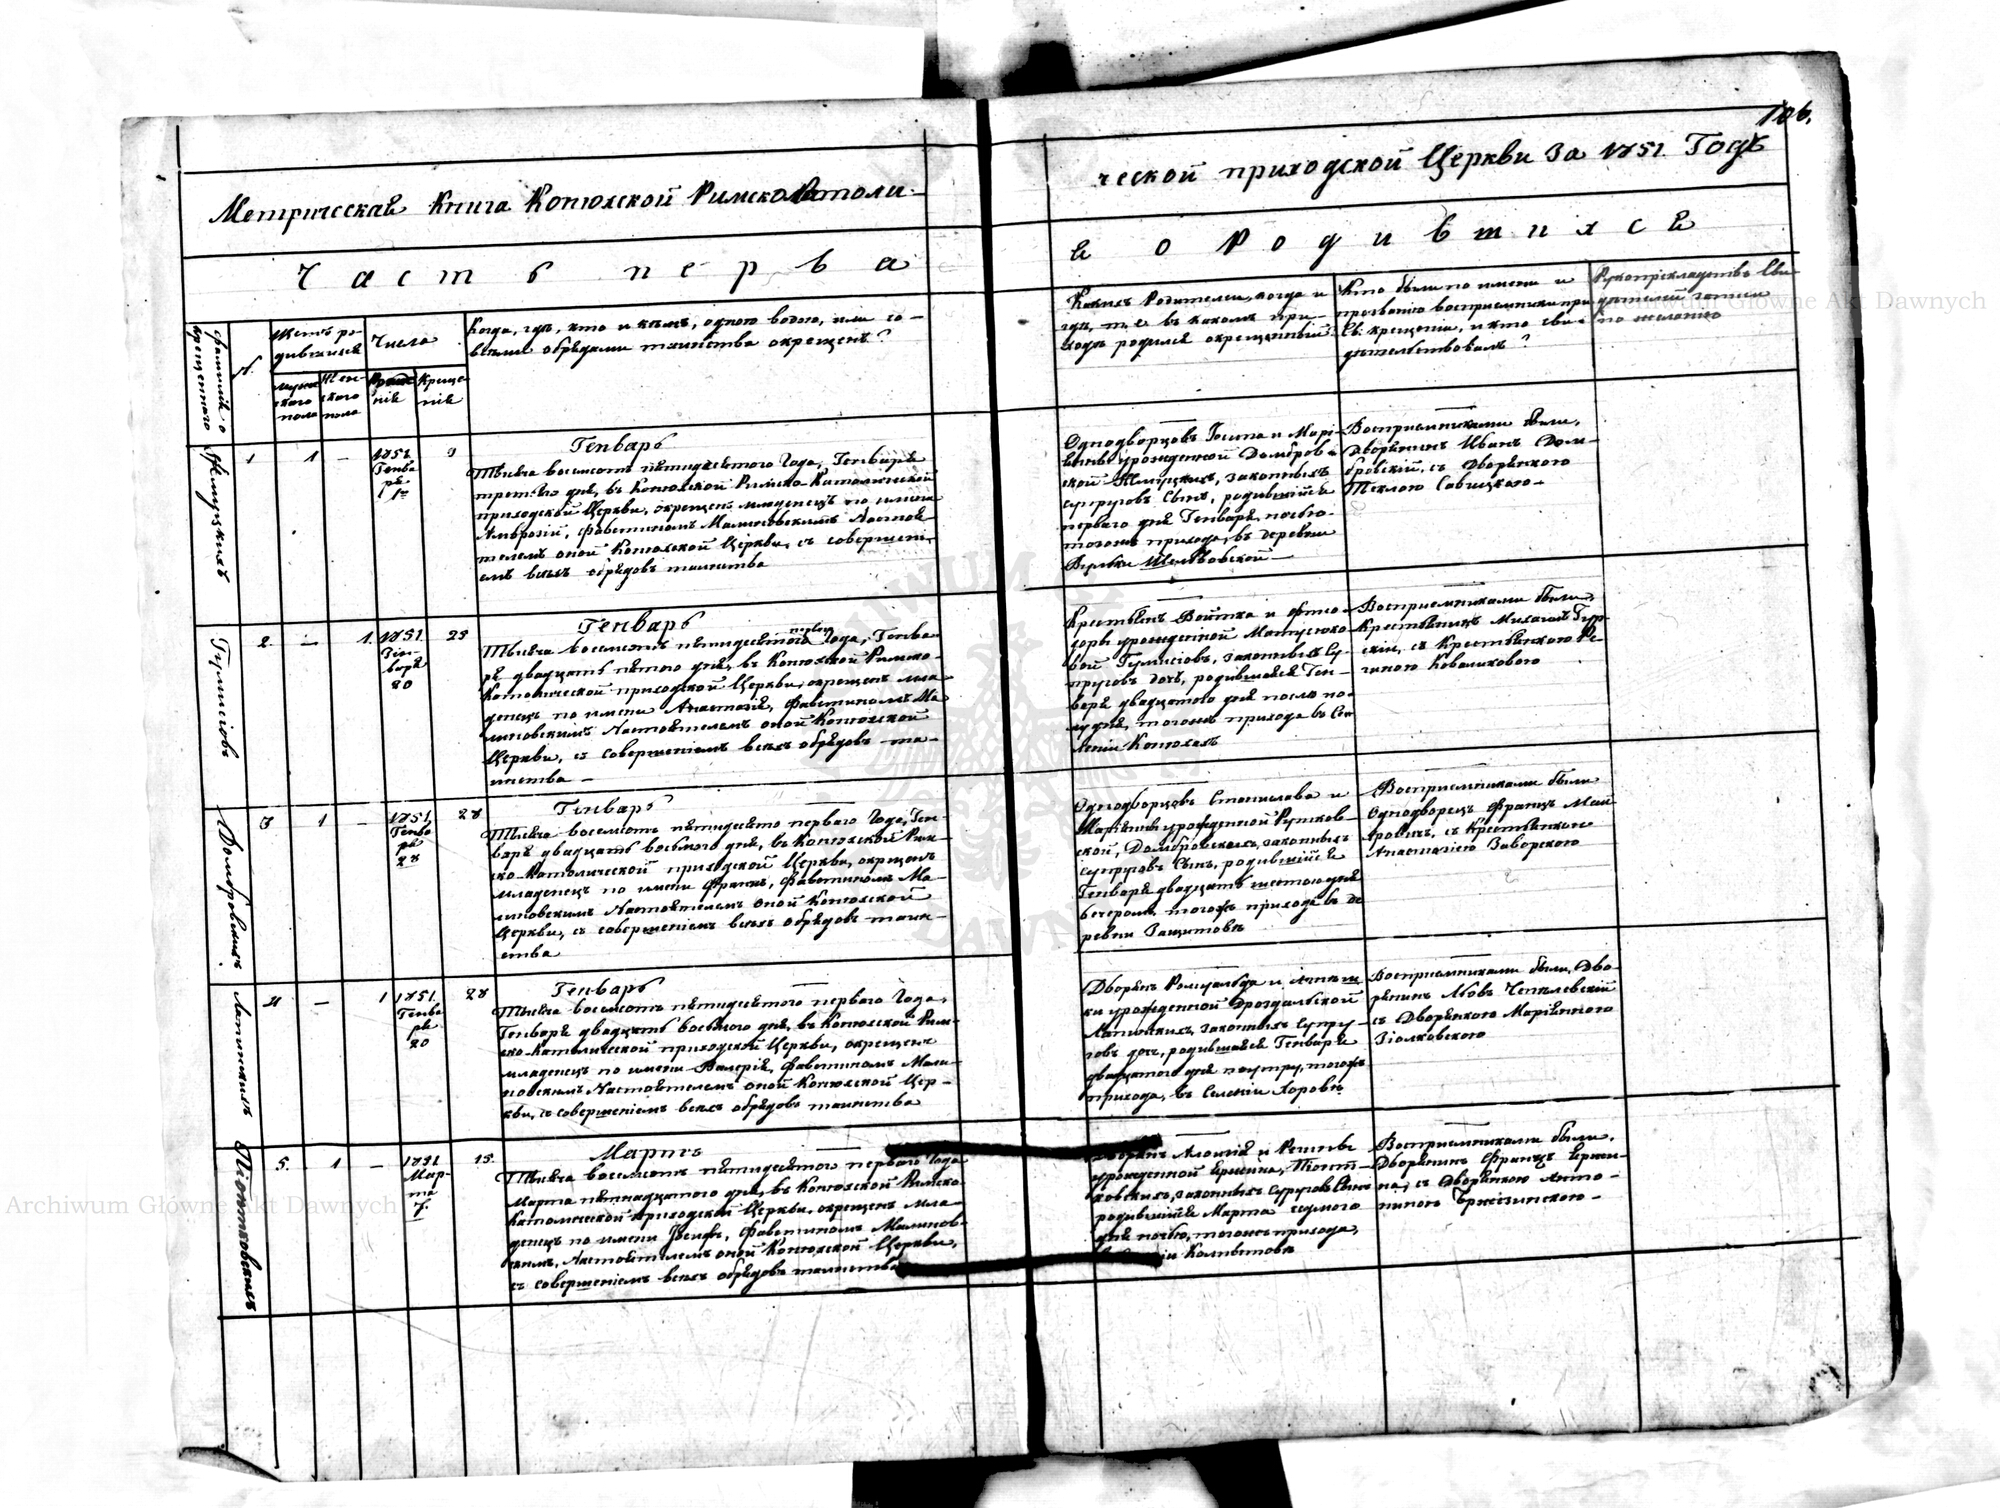 106.
Метрическая Книга Копюхской Римско Католи-
ческой приходской Церкви За 1851 Годъ
Часть перва
я о Родившихся
фамилія о
крещеннаго
№.
Щетъ ро-
дившихся
мужс
кого
пола
Жен-
ского
пола
Числа
нія
Креще-
нія
Когда, гдѣ, кто и кѣмъ, одною водою, или со
всѣми обрядами таинства окрещенъ?
Какихъ Родителей, когда и
гдѣ, т. е. въ какомъ при-
ходѣ родился окрещенный?
Кто были по имени и
прозванію восприемники при
Св: крещеніи, и кто сви-
дѣтельствовалъ?
Рукоприкладство Сви-
дѣтелей записи
по желанію
1 1 — 1851 Генва ря 1го 3
Генварь
Тысяча восемьсотъ пятидесятого Года, Генваря
третьего дня, въ Копюхской Римско-Католической
приходской Церкви, окрещенъ младенецъ по имени
Амвросій, Фавстиномъ Малиновскимъ Настоя-
телемъ оной Копюхской Церкви, съ совершені-
емъ всѣхъ обрядовъ таинства
Однодворцовъ Іосипа и Марі-
анны урожденной Домбров-
ской законныхъ
супруговъ Сынъ, родившійся
перваго дня Генваря ночью
тогожъ прихода, въ деревни
Вульки
Восприемниками были,
Дворянинъ Иванъ Дом-
бровскій, съ Дворянкою
Теклою Савицкою —
2. — 1. 1851 20 25
Генварь
Тысяча восемьсотъ пятидесятого перваго Года, Генва-
ря двадцать пятого дня, въ Копюхской Римско-
Католической приходской Церкви, окрещенъ мла-
денецъ по имени Анастазія, Фавстиномъ Ма-
линовскимъ Настоятелемъ оной Копюхской
Церкви, съ совершеніемъ всѣхъ обрядовъ та-
инства —
Крестьянъ Войтка и Фтио-
доры урожденной
вой законныхъ Су-
пруговъ дочь, родившаяся Ген-
варя двадцатого дня послѣ по-
лудня, тогожъ прихода въ Се-
леніи Копюхахъ
Восприемниками были,
Крестьянинъ Михаилъ
съ Крестьянкою Ре-
гиною Коваликовою
Домбровскихъ
3 1 — 1851 Генва ря 28 28
Генварь
Тысяча восемьсотъ пятидесято перваго Года, Ген-
варя двадцать восьмого дня, въ Копюхской Рим-
ско-Католической приходской Церкви, окрещенъ
младенецъ по имени Францъ, Фавстиномъ Ма-
линовскимъ Настоятелемъ оной Копюхской
Церкви, съ совершеніемъ всѣхъ обрядовъ таин-
ства
Однодворцовъ Станислава и
Маріянны урожденной Рутков-
ской, Домбровскихъ, законныхъ
супруговъ Сынъ, родившійся
Генваря двадцать шестого дня
вечеромъ тогожъ прихода въ де
ревни Защитовъ
Восприемниками были
Однодворецъ Францъ
съ Крестьянкою
Анастазіею Заворскою
4 — 1 1851 Генва ря 20 28
Генварь
Тысяча восемьсотъ пятидесятого перваго Года,
Генваря двадцать восьмого дня, въ Копюхской Рим-
ско-Католической приходской Церкви, окрещенъ
младенецъ по имени Валерія, Фавстиномъ Мали-
новскимъ Настоятелемъ оной Копюхской Цер-
кви, съ совершеніемъ всѣхъ обрядовъ таинства
Дворянъ Ромуальда и
ки урожденной
законныхъ Супру-
говъ дочь, родившаяся Генваря
двадцатого дня поутру, тогожъ
прихода, въ Селеніи Хоровъ
Восприемниками были, Дво-
рянинъ
съ Дворянкою Маріянною
Зіолковского
Піонтковскихъ
5. 1 — 1851 Мар- та 7. 15.
Мартъ
Тысяча восемьсотъ пятидесятого перваго Года
Марта пятнадцатого дня, въ Копюхской Римско-
Католической приходской Церкви, окрещенъ мла-
денецъ по имени Фавстиномъ Малинов-
скимъ, Настоятелемъ оной Копюхской Церкви,
съ совершеніемъ всѣхъ обрядовъ таинства
Дворянъ Алоизія и
урожденной Піонт-
ковскихъ, законныхъ супруговъ Сынъ
родившійся Марта седмого
дня ночью, тогожъ прихода,
Восприемниками были,
Дворянинъ Францъ
съ Дворянкою Анто-
ниною
Archiwum Główne Akt Dawnych
Archiwum Główne Akt Dawnych